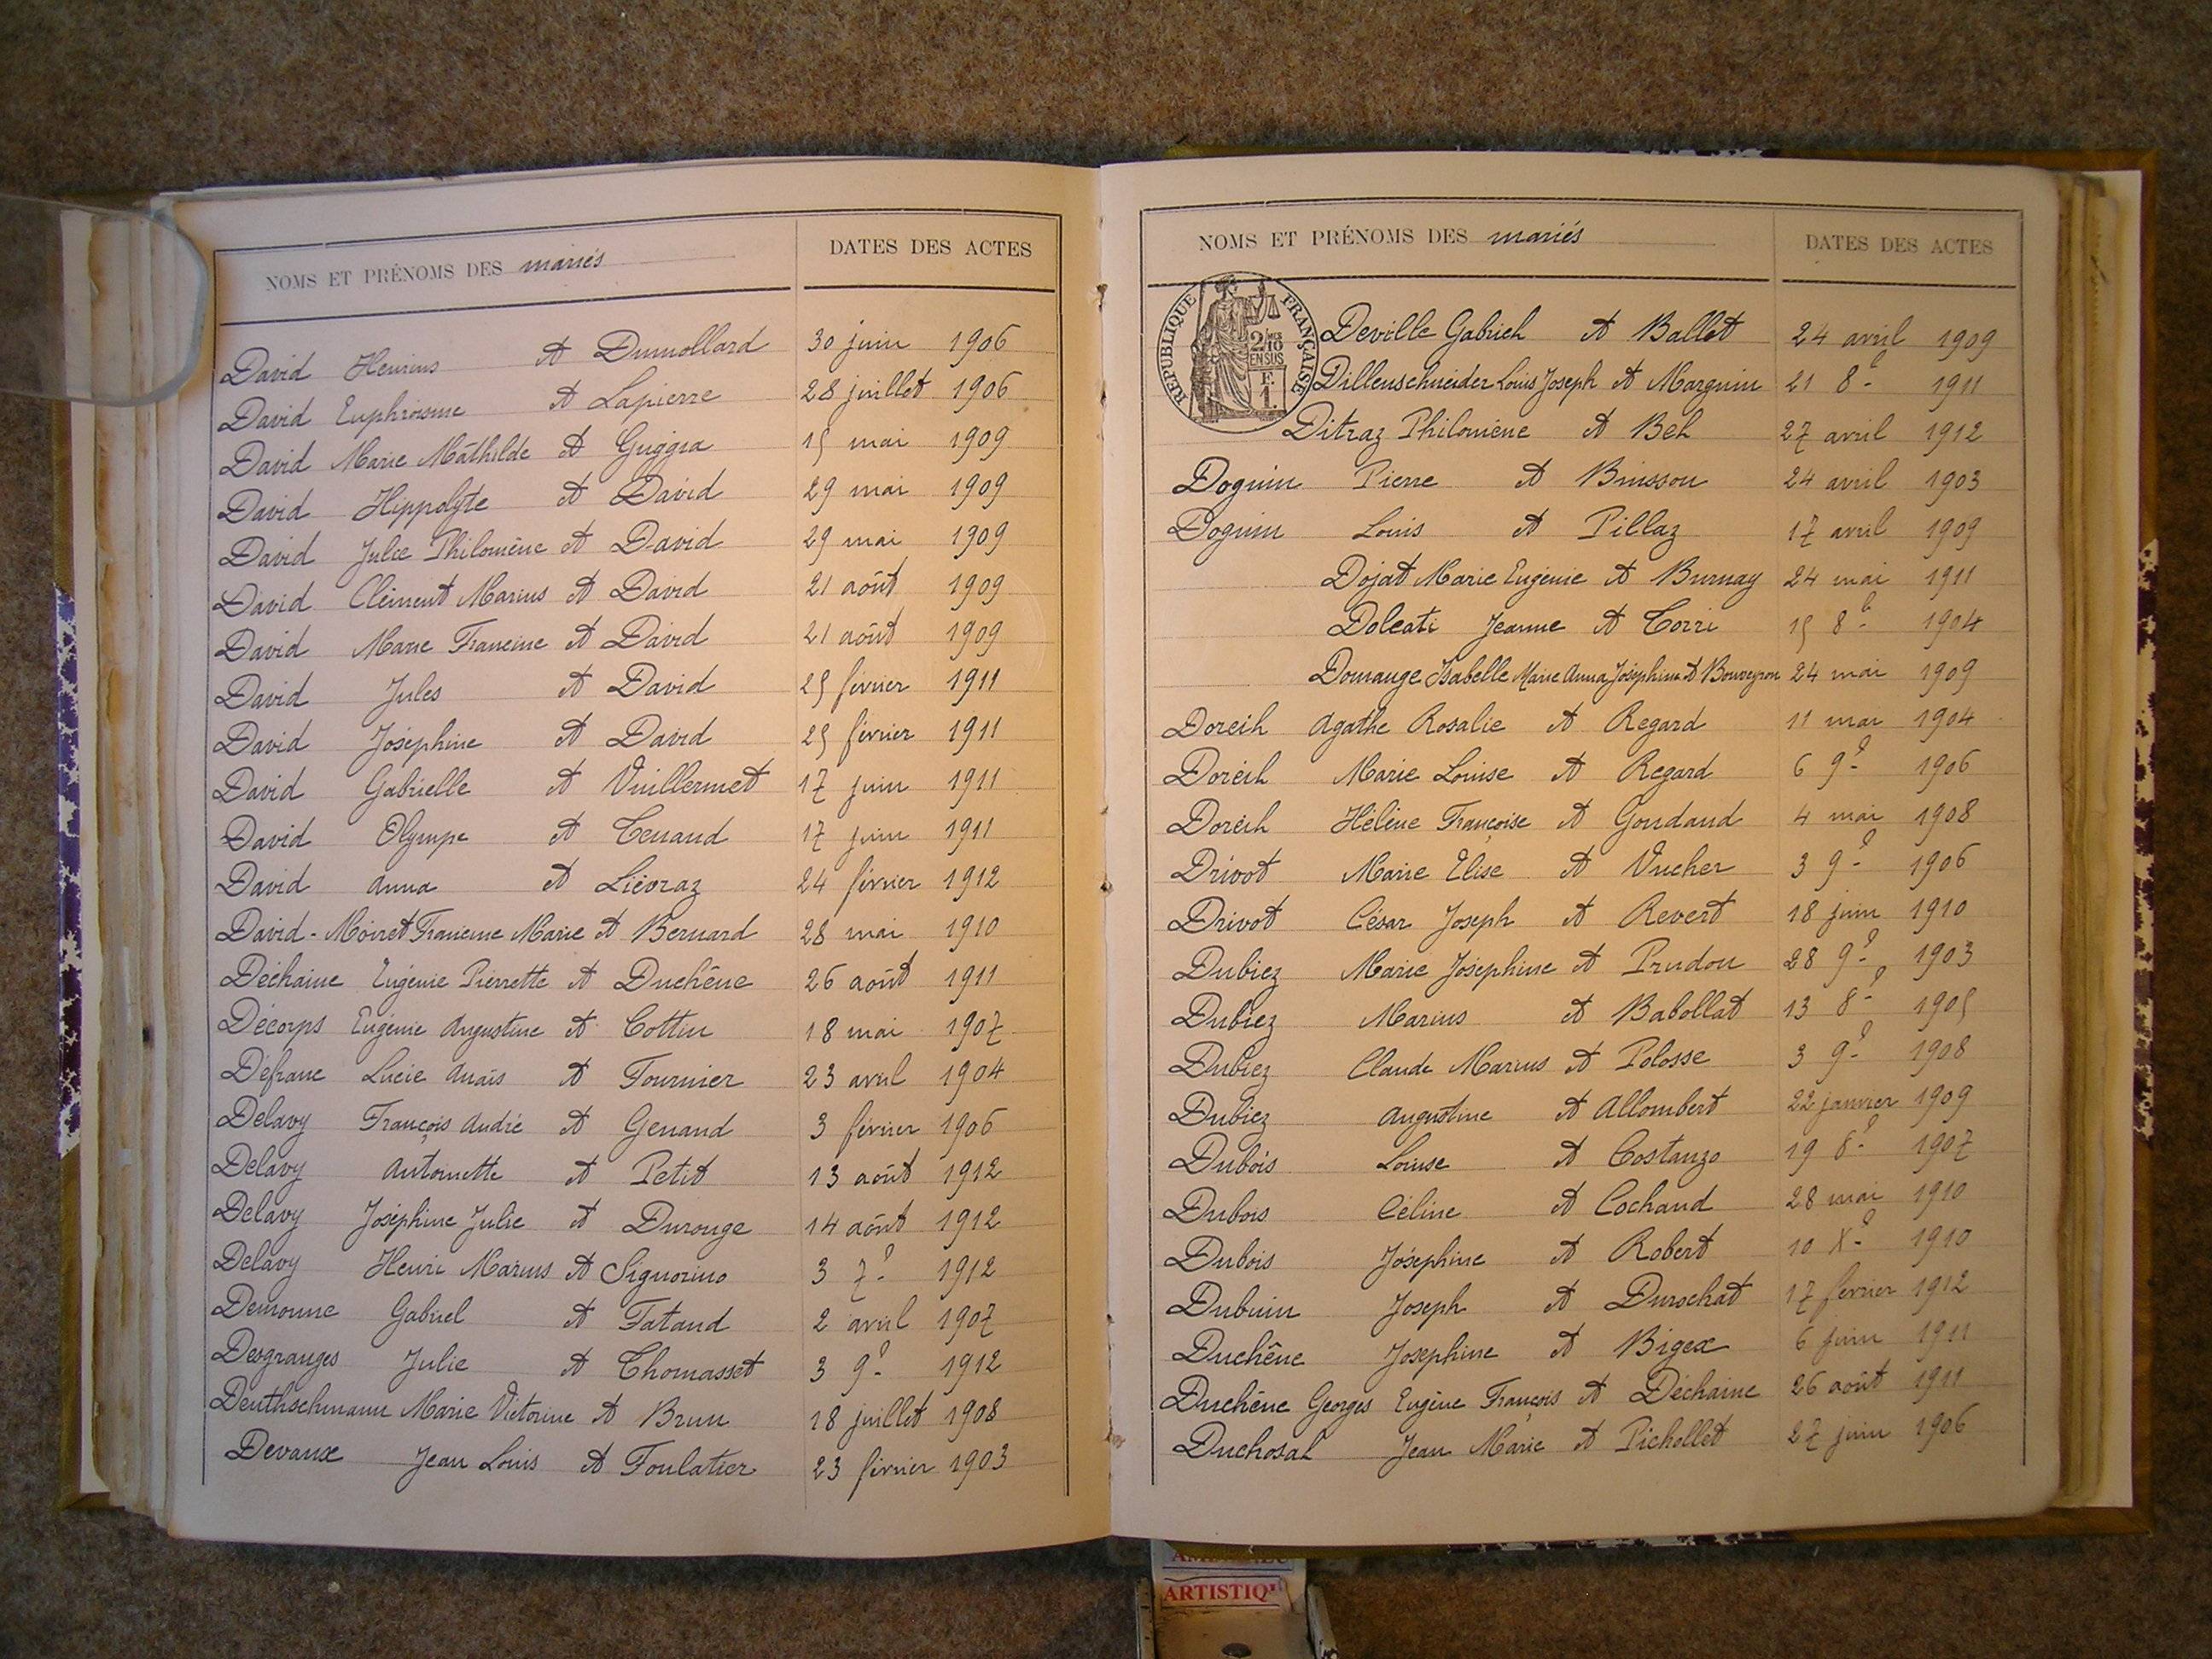 NOMS ET PRÉNOMS DES mariés DATES DES ACTES
David Henrius et Dumollard 30 juin 1906
David Euphrosine et Lapierre 28 juillet 1906
David Marie Mathilde et Guggia 15 mai 1909
David Hippolyte et David 29 mai 1909
David Julie Philomène et David 29 mai 1909
David Clément Marius et David 21 août 1909
David Marie Francine et David 21 août 1909
David Jules et David 25 février 1911
David Joséphine et David 25 février 1911
David Gabrielle et Vuillermet 17 juin 1911
David Olympe et Tenand 17 juin 1911
David Anna et Liévraz 24 février 1912
David-Moiret Francine Marie et Bernard 28 mai 1910
Déchaine Eugénie Pierrette et Duchêne 26 août 1911
Décorps Eugénie Augustine et Cottin 18 mai 1907
Défranc Lucie Anaïs et Fournier 23 avril 1904
Delavy François André et Genand 3 février 1906
Delavy Antoinette et Petit 13 août 1912
Delavy Joséphine Julie et Durouge 14 août 1912
Delavy Henri Marius et Signorino 3 7e 1912
Demonne Gabriel et Tataud 2 avril 1907
Desgranges Julie et Thomasset 3 9e 1912
Deuthschmann Marie Victorine et Brun 18 juillet 1908
Devaux Jean Louis et Foulatier 23 février 1903
NOMS ET PRÉNOMS DES mariés DATES DES ACTES
RÉPUBLIQUE FRANÇAISE
2/10
EN SUS
F.
1.
Deville Gabriel et Ballet 24 avril 1909
Dillenschneider Louis Joseph et Marguin 21 8e 1911
Ditraz Philomène et Bel 27 avril 1912
Doguin Pierre et Buisson 24 avril 1903
Doguin Louis et Pillaz 17 avril 1909
Dojat Marie Eugénie et Burnay 24 mai 1911
Dolcati Jeanne et Torri 15 8e 1904
Domange Isabelle Marie Anna Joséphine et Bouveyron 24 mai 1909
Doreil Agathe Rosalie et Regard 11 mai 1904
Doréil Marie Louise et Regard 6 9e 1906
Doréil Hélène Françoise et Goudand 4 mai 1908
Drivot Marie Élise et Vucher 3 9e 1906
Drivot César Joseph et Revert 18 juin 1910
Dubiez Marie Joséphine et Prudon 28 9e 1903
Dubiez Marius et Babollat 13 8e 1905
Dubiez Claude Marius et Polosse 3 9e 1908
Dubiez Augustine et Allombert 22 janvier 1909
Dubois Louise et Costanzo 19 8e 1907
Dubois Céline et Cochand 28 mai 1910
Dubois Joséphine et Robert 10 Xe 1910
Dubuin Joseph et Durochat 17 février 1912
Duchêne Joséphine et Bigex 6 juin 1911
Duchêne Georges Eugène François et Déchaine 26 août 1911
Duchosal Jean Marie et Pichollet 27 juin 1906
ARTISTIQ